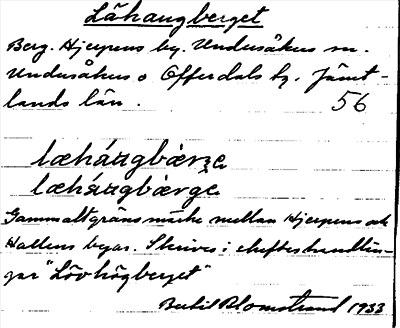 Låhaugberget
Berg. Hjerpens by. Undersåkers sn.
Undersåkers o Offerdals tg. Jämt-
lands län. 56
læháugbærze
læháugbærgè
Gammalt gränsmärke mellan Hjerpens och
Hallens byar. Skrives i skifteshandlin-
gar "Lövhögberget"
Bertil Blomstrand 1933